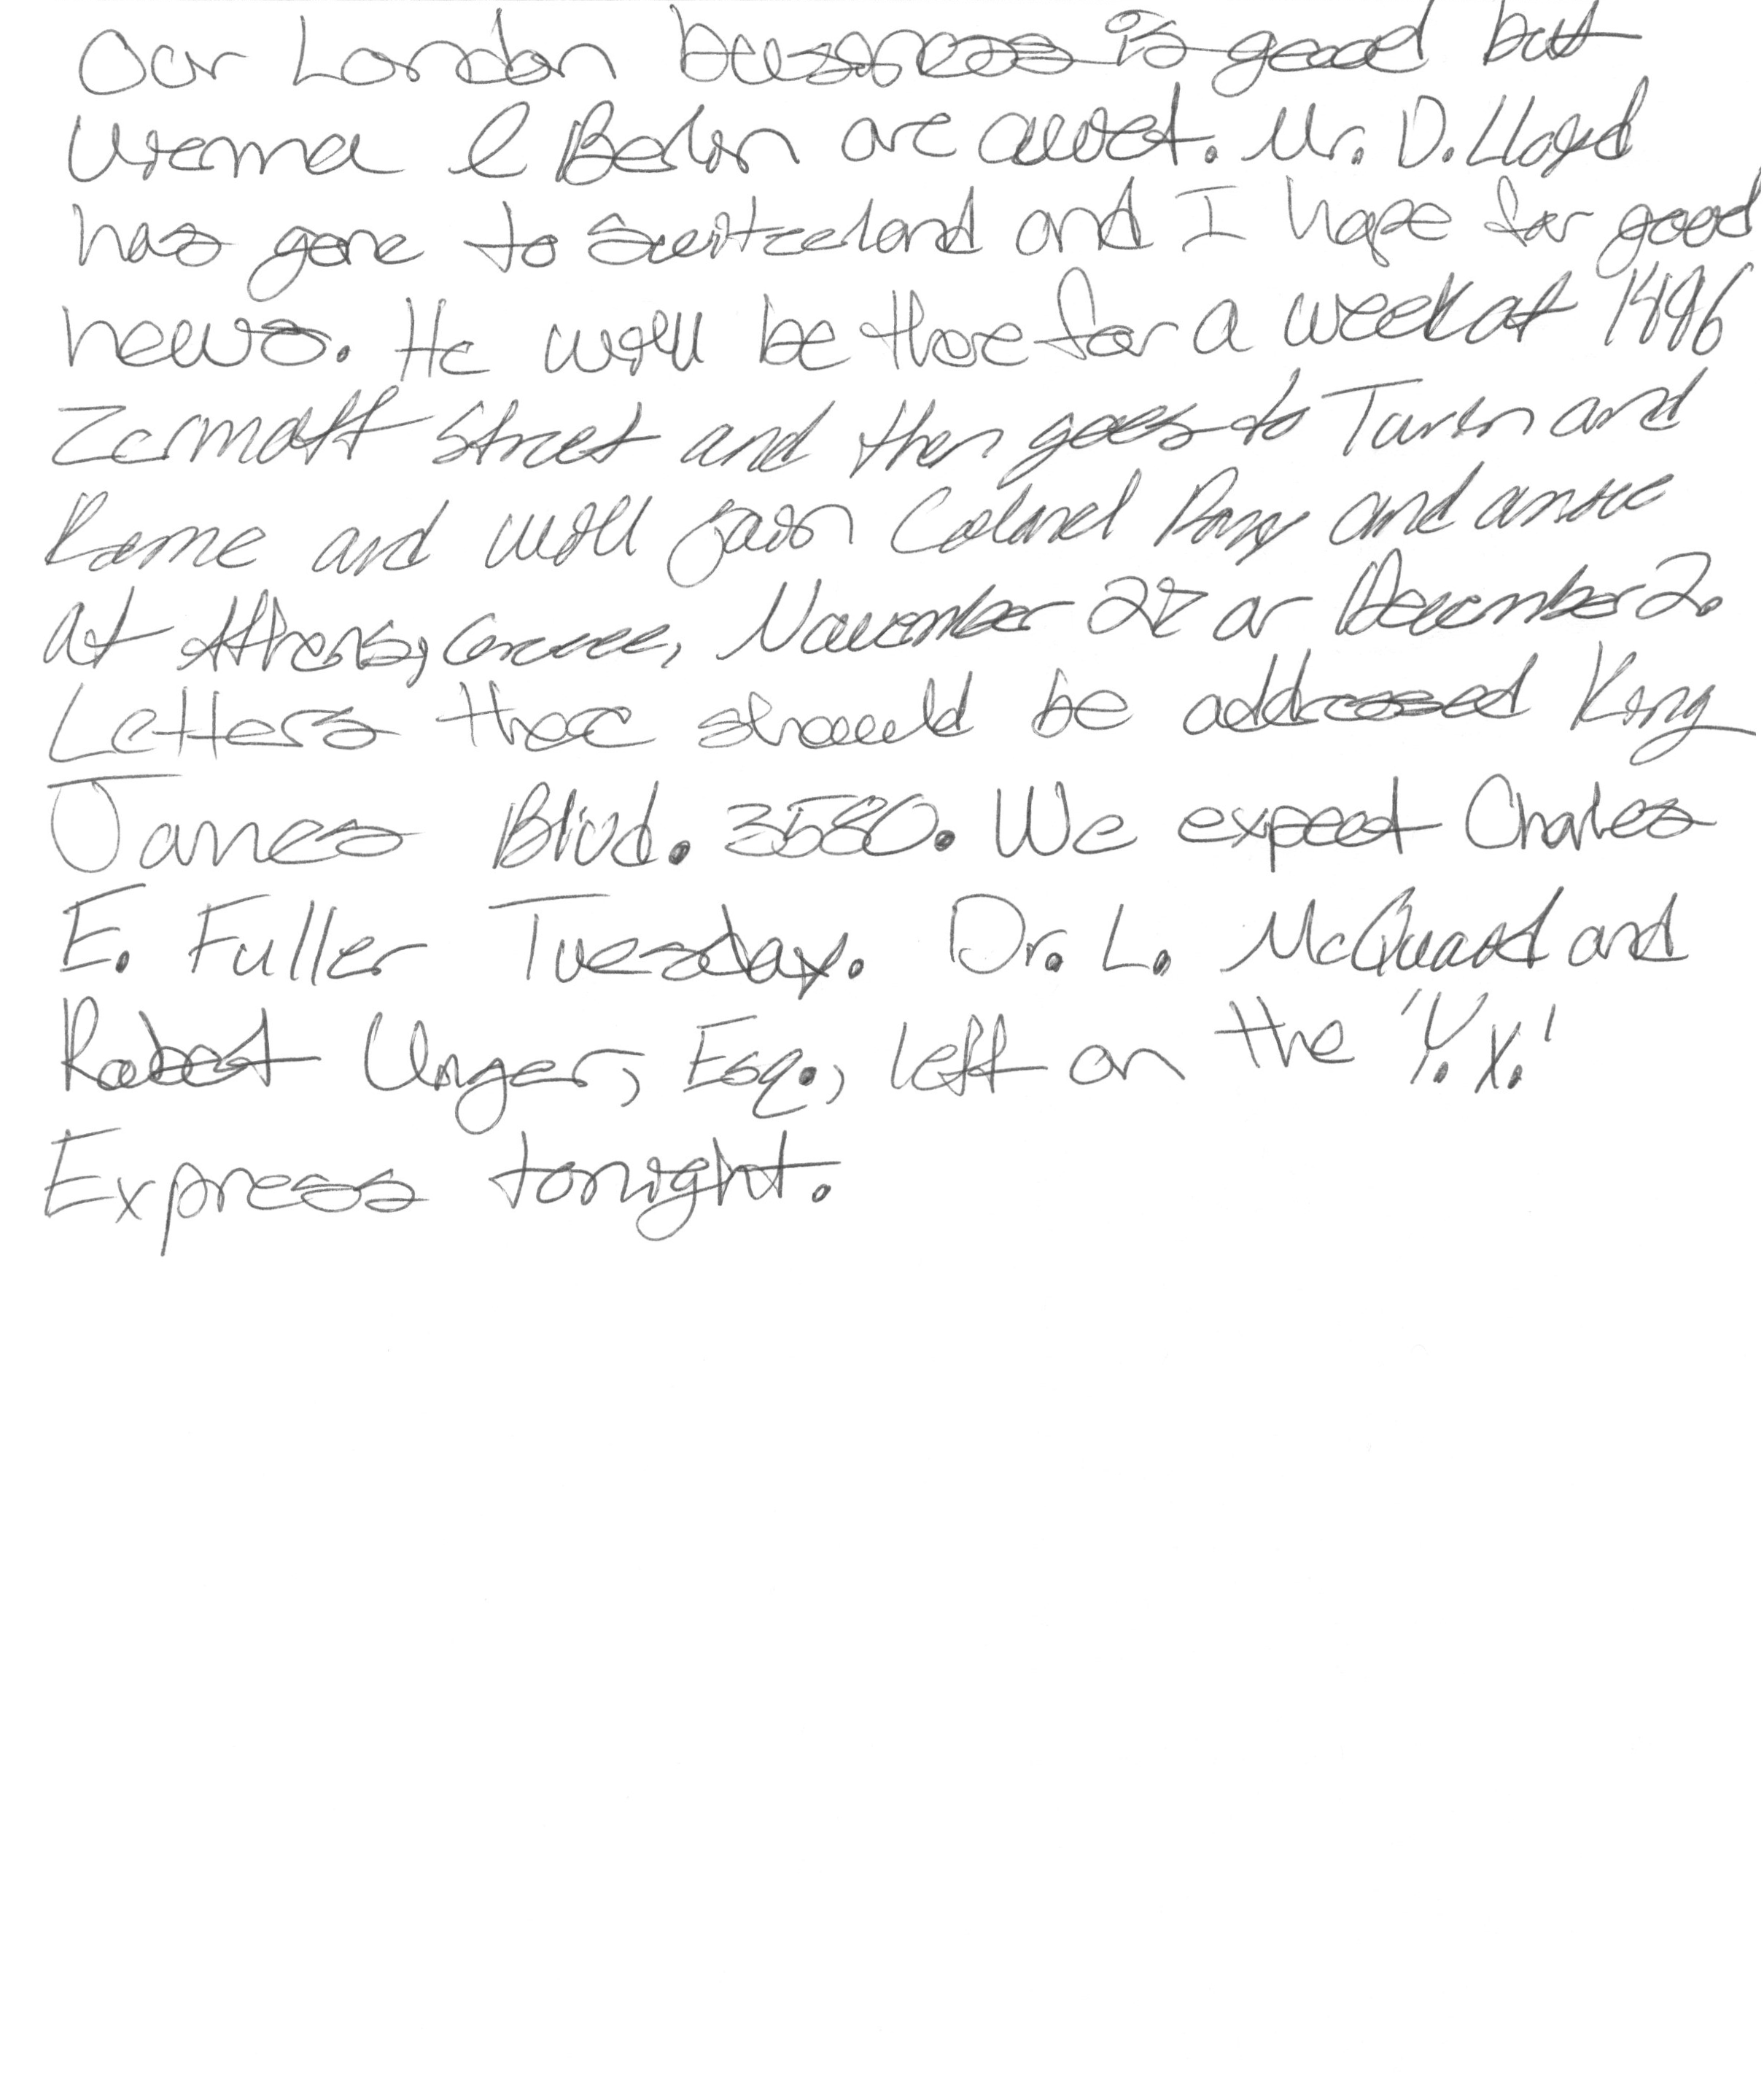 Our London business is good but
Vienna & Berlin are quiet. Mr. D. Lloyd
has gone to Switzerland and I hope for good
news. He will be there for a week at 1496
Zermatt Street and then goes to Turin and
Rome and will join Colonel Parry and arrive
at Athens, Greece, November 27 or December 2.
Letters there should be addressed King
James Blvd. 3580. We expect Charles
E. Fuller Tuesday. Dr. L. McQuaid and
Robert Unger, Esq., left on the 'Y.X.'
Express tonight.